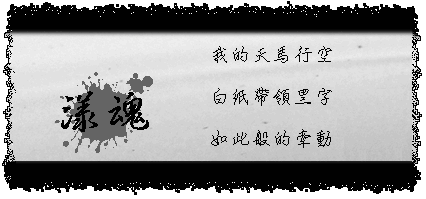 漾魂
我的天馬行空
白紙帶領黑字
如此般的牽動